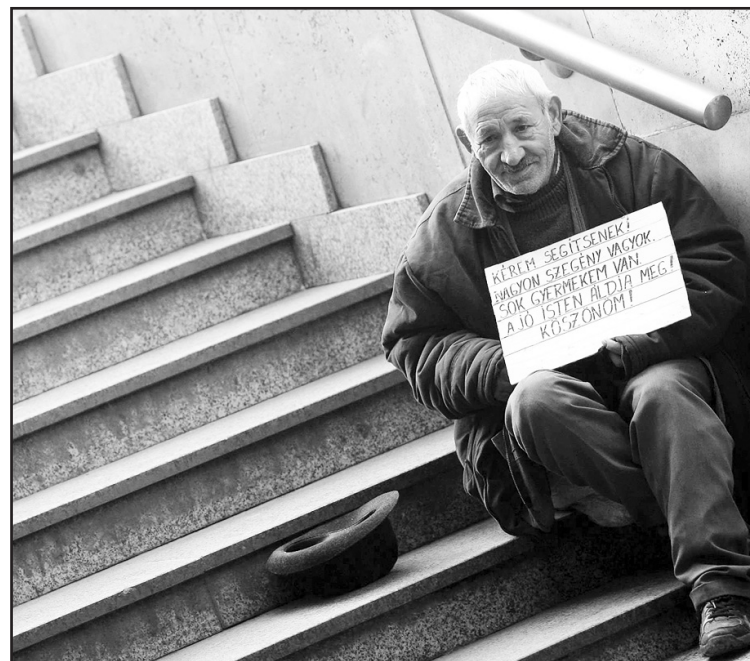 KÉREM SEGÍTSENEK!
NAGYON SZEGÉNY VAGYOK.
SOK GYERMEKEM VAN
A JÓ ISTEN ÁLDJA MEG!
KÖSZÖNÖM!